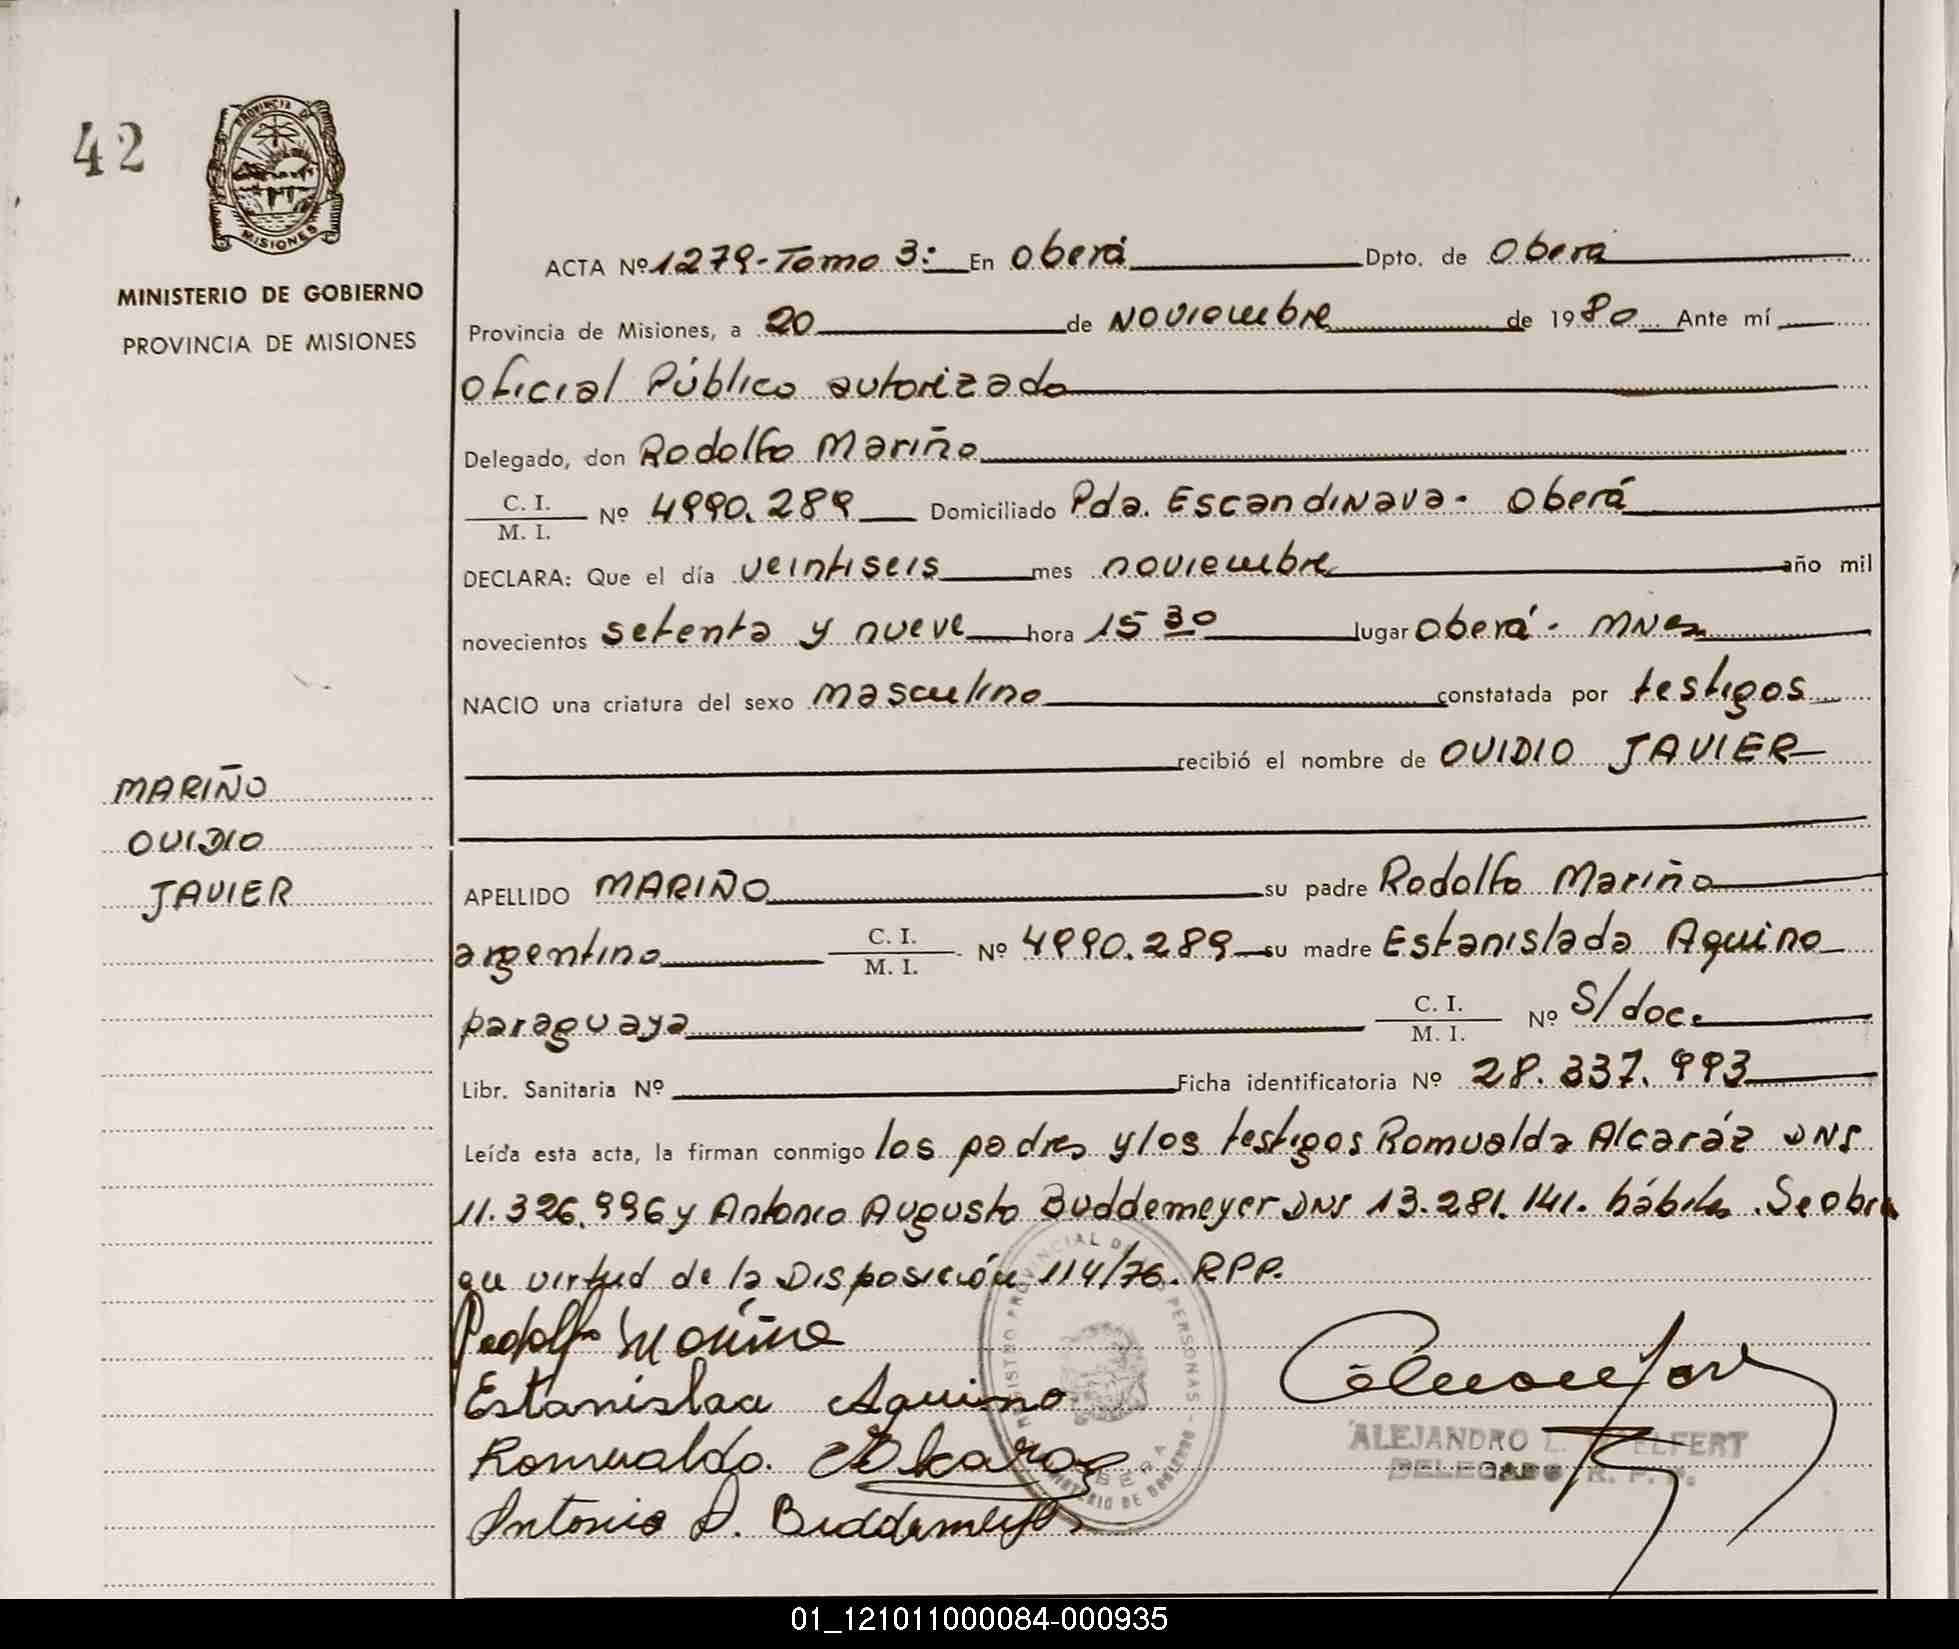 42
PROVINCIA DE
MISIONES
MINISTERIO DE GOBIERNO
PROVINCIA DE MISIONES
ACTA Nº 1279-Tomo 3: En Oberá Dpto. de Oberá
Provincia de Misiones, a 20 de Noviembre de 1980 Ante mí
Oficial Público autorizado
Delegado, don Rodolfo Mariño
C. I.
M. I. Nº 4990.289 Domiciliado Pda. Escandinava- Oberá
DECLARA: Que el día veintiseis mes noviembre año mil
novecientos setenta y nueve hora 15 30 lugar Oberá- MNes
NACIO una criatura del sexo masculino constatada por testigos
recibió el nombre de OVIDIO JAVIER
MARIÑO
OVIDIO
JAVIER
APELLIDO MARIÑO su padre Rodolfo Mariño
argentino C. I. M. I. Nº 4990.289 su madre Estanislada Aquino
paraguaya C. I. M. I. Nº S/doc.
Libr. Sanitaria Nº Ficha identificatoria Nº 28.337.993
Leída esta acta, la firman conmigo los padres y los testigos Romualdo Alcaráz DNI
11.326.996 y Antonio Augusto Buddemeyer DNI 13.281.141. hábiles. Se obra
en virtud de la Disposición 114/76. RPP.
Rodolfo Mariño
Estanislaa Aquino
Romualdo Alcaraz
Antonio A. Buddemeyer
REGISTRO PROVINCIAL DE LAS PERSONAS - MINISTERIO DE GOBIERNO
OBERA
ALEJANDRO L. ELFERT
DELEGADO R. P. P.
01_121011000084-000935